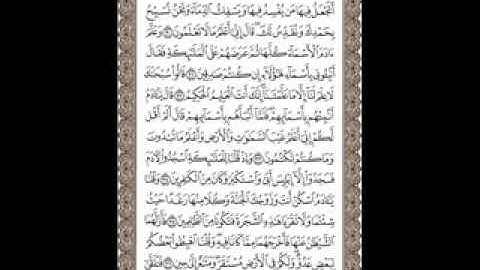 أَتَجْعَلُ فِيهَا مَن يُفْسِدُ فِيهَا وَيَسْفِكُ ٱلدِّمَآءَ وَنَحْنُ نُسَبِّحُ
بِحَمْدِكَ وَنُقَدِّسُ لَكَ ۖ قَالَ إِنِّىٓ أَعْلَمُ مَا لَا تَعْلَمُونَ ۝٣٠ وَعَلَّمَ
ءَادَمَ ٱلْأَسْمَآءَ كُلَّهَا ثُمَّ عَرَضَهُمْ عَلَى ٱلْمَلَٰٓئِكَةِ فَقَالَ
أَنۢبِـُٔونِى بِأَسْمَآءِ هَٰٓؤُلَآءِ إِن كُنتُمْ صَٰدِقِينَ ۝٣١ قَالُوا۟ سُبْحَٰنَكَ
لَا عِلْمَ لَنَآ إِلَّا مَا عَلَّمْتَنَآ ۖ إِنَّكَ أَنتَ ٱلْعَلِيمُ ٱلْحَكِيمُ ۝٣٢ قَالَ يَٰٓـَٔادَمُ
أَنۢبِئْهُم بِأَسْمَآئِهِمْ ۖ فَلَمَّآ أَنۢبَأَهُم بِأَسْمَآئِهِمْ قَالَ أَلَمْ أَقُل
لَّكُمْ إِنِّىٓ أَعْلَمُ غَيْبَ ٱلسَّمَٰوَٰتِ وَٱلْأَرْضِ وَأَعْلَمُ مَا تُبْدُونَ
وَمَا كُنتُمْ تَكْتُمُونَ ۝٣٣ وَإِذْ قُلْنَا لِلْمَلَٰٓئِكَةِ ٱسْجُدُوا۟ لِـَٔادَمَ
فَسَجَدُوٓا۟ إِلَّآ إِبْلِيسَ أَبَىٰ وَٱسْتَكْبَرَ وَكَانَ مِنَ ٱلْكَٰفِرِينَ ۝٣٤ وَقُلْنَا
يَٰٓـَٔادَمُ ٱسْكُنْ أَنتَ وَزَوْجُكَ ٱلْجَنَّةَ وَكُلَا مِنْهَا رَغَدًا حَيْثُ
شِئْتُمَا وَلَا تَقْرَبَا هَٰذِهِ ٱلشَّجَرَةَ فَتَكُونَا مِنَ ٱلظَّٰلِمِينَ ۝٣٥ فَأَزَلَّهُمَا
ٱلشَّيْطَٰنُ عَنْهَا فَأَخْرَجَهُمَا مِمَّا كَانَا فِيهِ ۖ وَقُلْنَا ٱهْبِطُوا۟ بَعْضُكُمْ
لِبَعْضٍ عَدُوٌّ ۖ وَلَكُمْ فِى ٱلْأَرْضِ مُسْتَقَرٌّ وَمَتَٰعٌ إِلَىٰ حِينٍ ۝٣٦ فَتَلَقَّىٰٓ